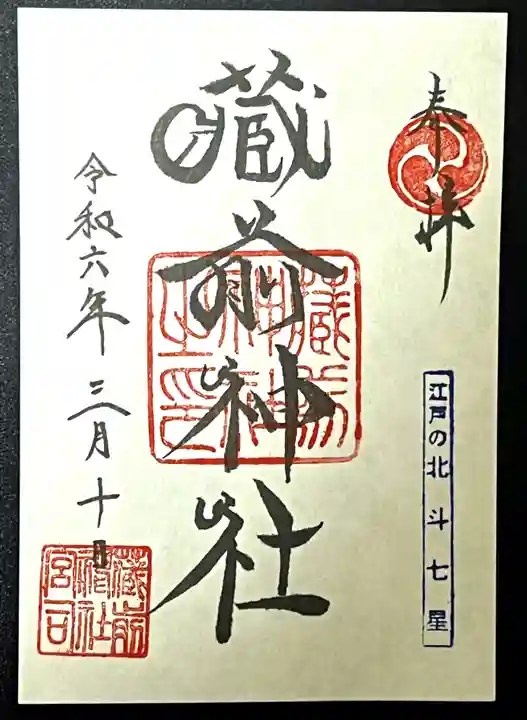 奉拝
江戸の北斗七星
蔵前神社
蔵前神社之印
令和六年三月十日
蔵前神社宮司